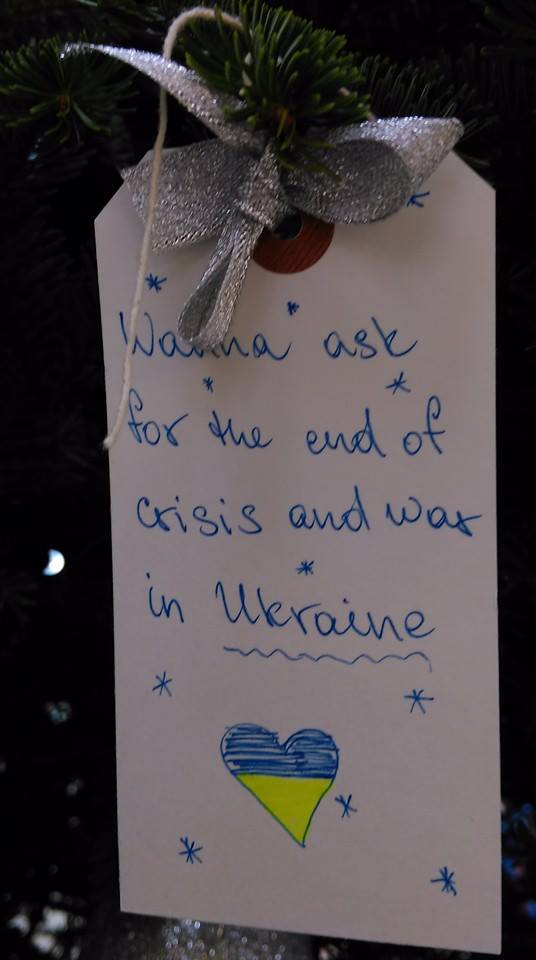 Wanna ask
for the end of
crisis and war
in Ukraine